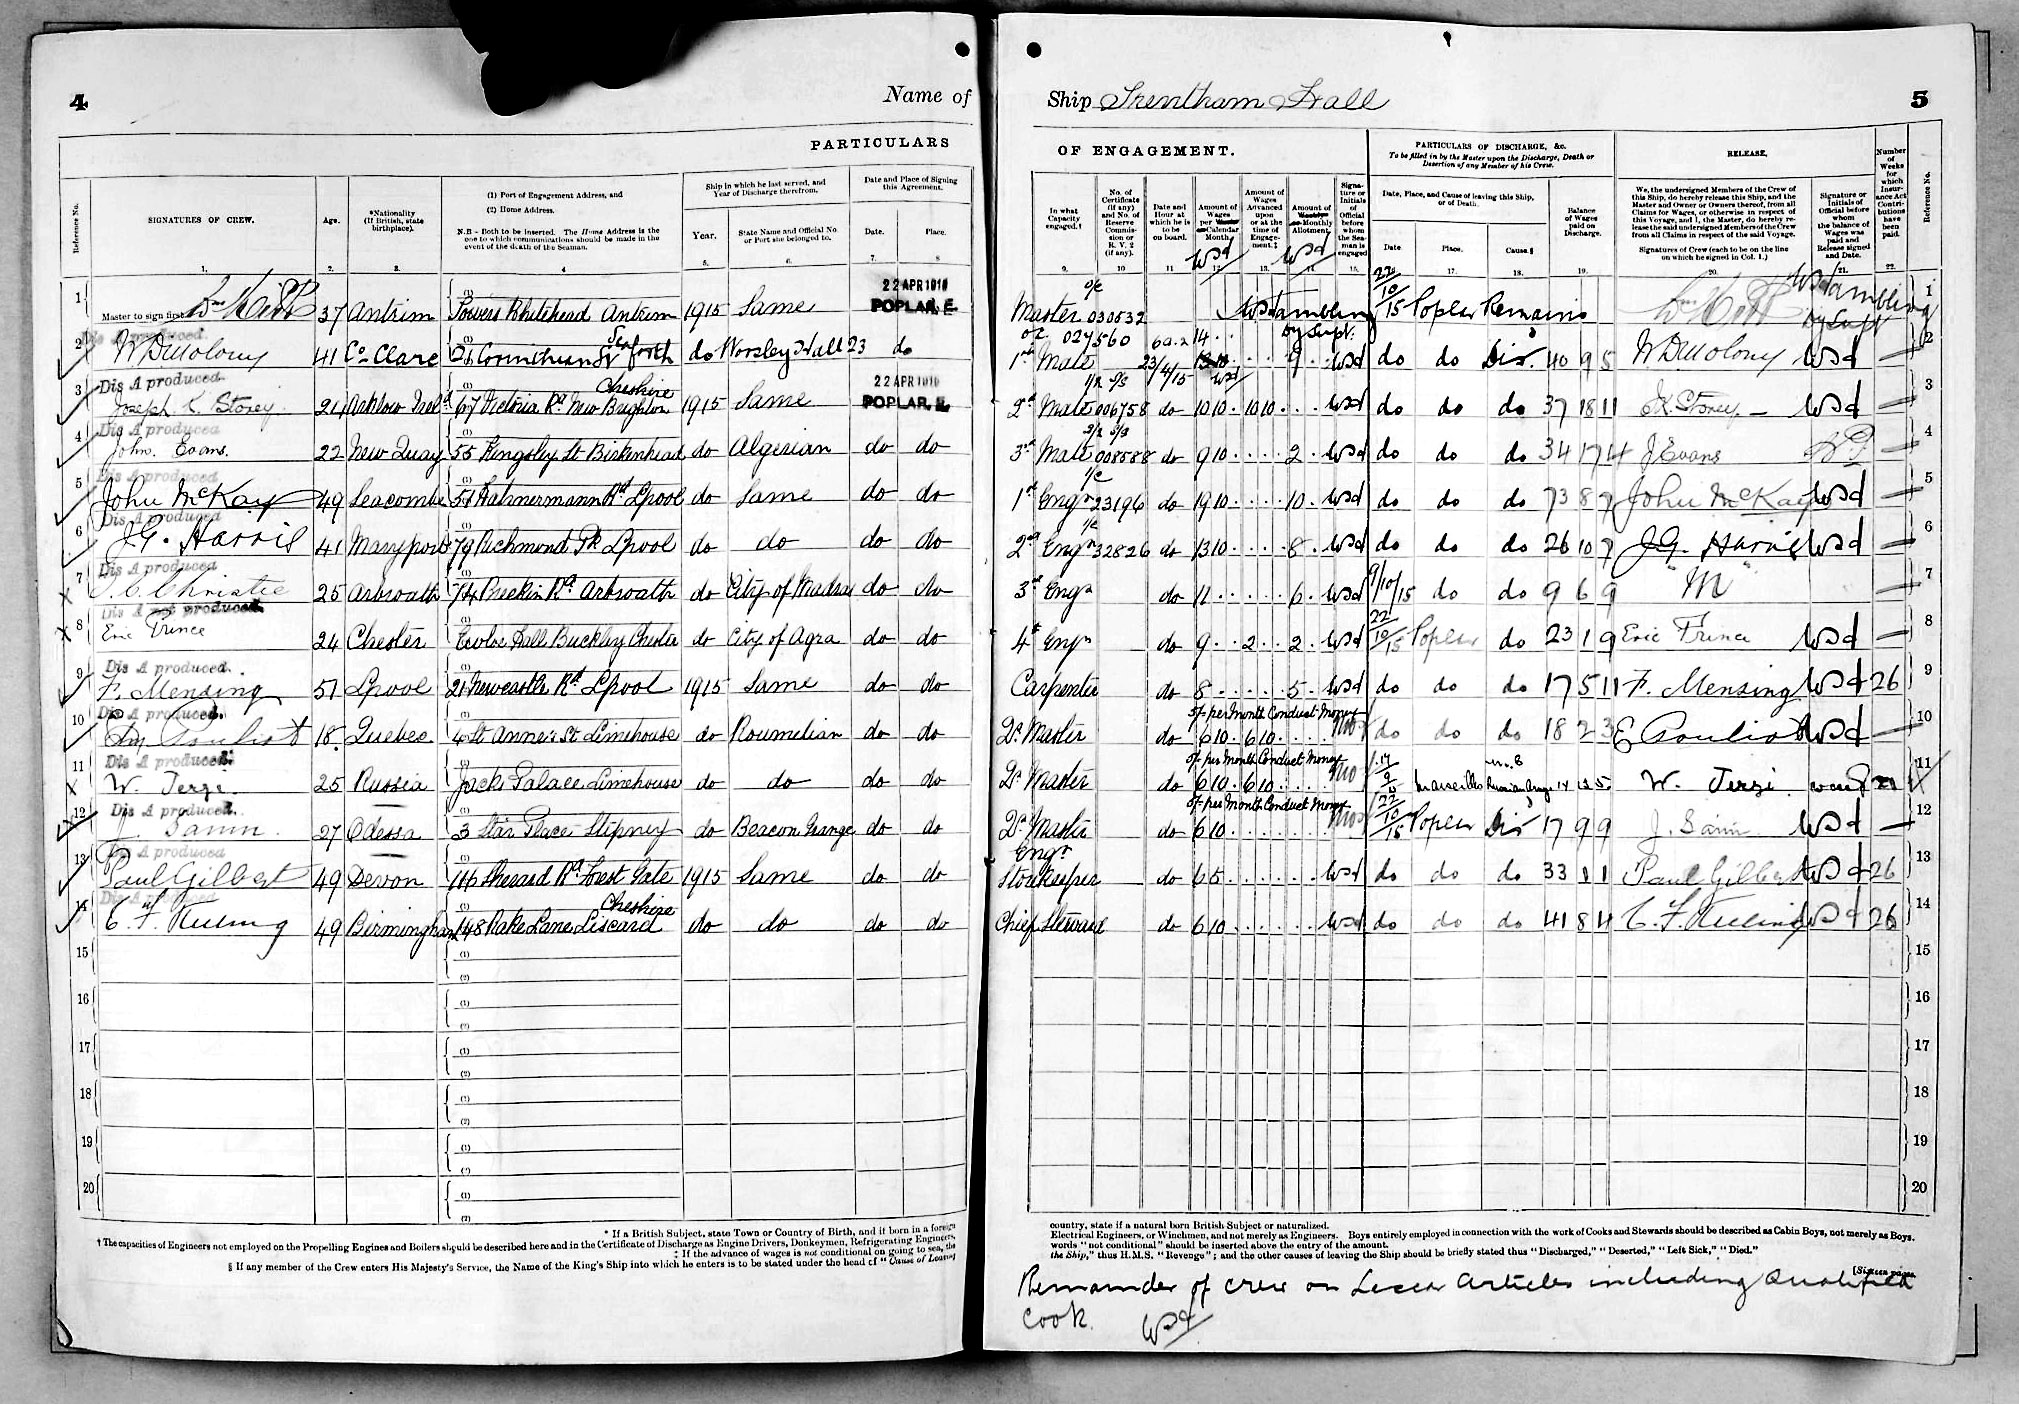 4
Name of
PARTICULARS
Reference No.
SIGNATURES OF CREW.
Age.
*Nationality
(If British, state
birthplace).
(1) Port of Engagement Address, and
(2) Home Address.
N.B – Both to be inserted. The Home Address is the
one to which communications should be made in the
event of the death of the Seaman.
Ship in which he last served, and
Year of Discharge therefrom.
Year.
State Name and Official No.
or Port she belonged to.
Date and Place of Signing
this Agreement.
Date.
Place.
1. 2. 3. 4 5. 6. 7. 8
1 Master to sign first 37 Antrim Towers Whitehead Antrim 1915 Same 22 APR 1915 POPLAR, E.
Dis A produced.
2 41 Co. Clare 26 Corinthian St Seaforth do Worsley Hall 23 do
Dis A produced.
3 Joseph K. Storey 24 Arklow Ireld 67 Victoria Rd New Brighton Cheshire 1915 Same 22 APR 1915 POPLAR, E.
Dis A produced
4 John. Evans. 22 New Quay 55 Kingsley St Birkenhead do Algerian do do
Dis A produced.
5 John McKay 49 Seacombe 51 Hahnermann Rd Lpool do Same do do
Dis A produced
6 J.G. Harris 41 Maryport 79 Richmond Pk Lpool do do do do
Dis A produced
7 Christie 25 Arbroath 74 Brechin Rd Arbroath do City of Madras do do
Dis A not produced.
8 Eric Prince 24 Chester Ewloe Hall Buckley Chester do City of Agra do do
Dis A produced.
9 F. Mensing 51 Lpool 21 Newcastle Rd Lpool 1915 Same do do
Dis A produced.
10 Pouliot 18 Quebec 4 St Anne's St Limehouse do Roumelian do do
Dis A produced.
11 W. Terze. 25 Russia Jacks Palace Limehouse do do do do
Dis A produced.
12 J. Sanin. 27 Odessa 3 Star Place Stepney do Beacon Grange do do
Dis A produced
13 Paul Gilbert 49 Devon 116 Sherrard Rd Forest Gate 1915 Same do do
14 C. F. 49 Birmingham 148 Rake Lane Liscard Cheshire do do do do
15
16
17
18
19
20
* If a British Subject, state Town or Country of Birth, and if born in a foreign
† The capacities of Engineers not employed on the Propelling Engines and Boilers should be described here and in the Certificate of Discharge as Engine Drivers, Donkeymen, Refrigerating Engineers,
‡ If the advance of wages is not conditional on going to sea, the
§ If any member of the Crew enters His Majesty's Service, the Name of the King's Ship into which he enters is to be stated under the head of "Cause of Leaving
Ship Trentham Hall
5
OF ENGAGEMENT.
PARTICULARS OF DISCHARGE, &c.
To be filled in by the Master upon the Discharge, Death or
Desertion of any Member of his Crew.
RELEASE.
In what
Capacity
engaged.†
No. of
Certificate
(if any)
and No. of
Reserve
Commis-
sion or
R. V. 2
(if any).
Date and
Hour at
which he is
to be
on board.
Amount of
Wages
per
Calendar
Month.
Amount of
Wages
Advanced
upon
or at the
time of
Engage-
ment.‡
Amount of
Monthly
Allotment.
Signa-
ture or
Initials
of
Official
before
whom
the Sea-
man is
engaged
Date, Place, and Cause of leaving this Ship,
or of Death.
Date
Place.
Cause.§
Balance
of Wages
paid on
Discharge.
We, the undersigned Members of the Crew of
this Ship, do hereby release this Ship, and the
Master and Owner or Owners thereof, from all
Claims for Wages, or otherwise in respect of
this Voyage, and I, the Master, do hereby re-
lease the said undersigned Members of the Crew
from all Claims in respect of the said Voyage.
Signatures of Crew (each to be on the line
on which he signed in Col. 1.)
Signature or
Initials of
Official before
whom
the balance of
Wages was
paid and
Release signed
and Date.
Number
of
Weeks
for
which
Insur-
ance Act
Contri-
butions
have
been
paid.
Reference No.
9. 10 11 12. 13. 14. 15. 17. 18. 19. 20. 21. 22.
Master 030532 22/10/15 Poplar Remains 1
1st Mate 027560 6 a.m. 23/4/15 14 9 do do Dis. 40 9 5 2
2nd Mate 006758 do 10 10 10 10 do do do 37 18 11 3
3rd Mate 008588 do 9 10 2 do do do 34 17 4 J Evans 4
1st Engr 23196 do 19 10 10 do do do 73 8 7 John McKay 5
2nd Engr 32826 do 13 10 8 do do do 26 10 7 J.G. Harris 6
3rd Engr do 11 6 9/10/15 do do 9 6 9 "M" 7
4th Engr do 9 2 2 22/10/15 Poplar do 23 1 9 Eric Prince 8
Carpenter do 8 5 do do do 17 5 11 F. Mensing 26 9
5/- per Month Conduct Money
Qr. Master do 6 10 6 10 do do do 18 2 3 E Pouliot 10
5/- per Month Conduct Money
Qr Master do 6 10 6 10 Marseilles Russian Army 14 12 5 W. Terzi 11
5/- per Month Conduct Money
Qr Master do 6 10 22/10/15 Poplar Dis 17 9 9 J. Sanin 12
Engr
Storekeeper do 6 5 do do do 33 1 1 Paul Gilbert 26 13
Chief Steward do 6 10 do do do 41 8 4 C. F. 26 14
15
16
17
18
19
20
country, state if a natural born British Subject or naturalized.
Electrical Engineers, or Winchmen, and not merely as Engineers. Boys entirely employed in connection with the work of Cooks and Stewards should be described as Cabin Boys, not merely as Boys.
words "not conditional" should be inserted above the entry of the amount.
the Ship," thus H.M.S. "Revenge"; and the other causes of leaving the Ship should be briefly stated thus "Discharged," "Deserted," "Left Sick," "Died."
[Sixteen pages
Remainder of crew on Lascar Articles including Qualified
Cook.